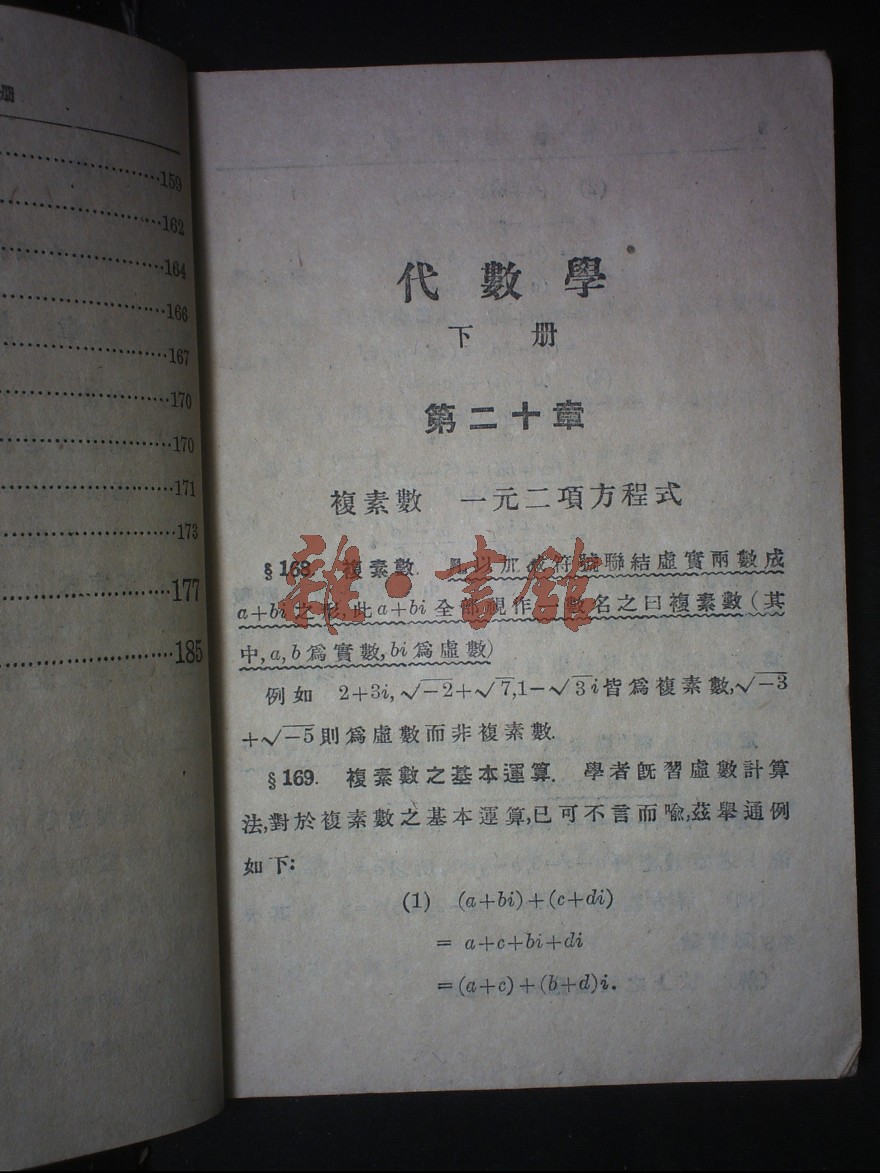 册
159
162
164
166
167
170
170
171
173
177
185
代數學
下册
第二十章
複素數 一元二項方程式
§168. 複素數. 凡以加減符號聯結虛實兩數成
a+bi之形,此a+bi全部視作一數名之曰複素數(其
中,a,b爲實數,bi爲虛數)
例如 2+3i,√-2+√7,1-√3i皆爲複素數,√-3
+√-5則爲虛數而非複素數.
§169. 複素數之基本運算. 學者旣習虛數計算
法,對於複素數之基本運算,已可不言而喩,茲舉通例
如下:
(1) (a+bi)+(c+di)
= a+c+bi+di
=(a+c)+(b+d)i.
雅·書館